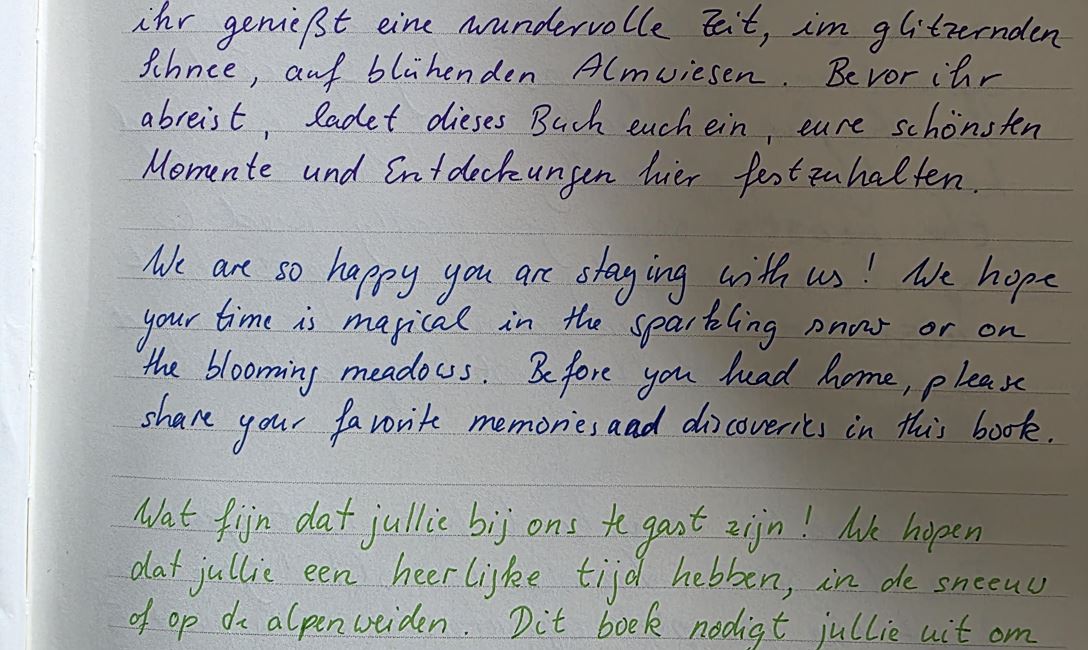 ihr genießt eine wundervolle Zeit, im glitzernden
Schnee, auf blühenden Almwiesen. Bevor ihr
abreist, ladet dieses Buch euch ein, eure schönsten
Momente und Entdeckungen hier festzuhalten.
We are so happy you are staying with us! We hope
your time is magical in the sparkling snow or on
the blooming meadows. Before you head home, please
share your favorite memories and discoveries in this book.
Wat fijn dat jullie bij ons te gast zijn! We hopen
dat jullie een heerlijke tijd hebben, in de sneeuw
of op de alpenweiden. Dit boek nodigt jullie uit om